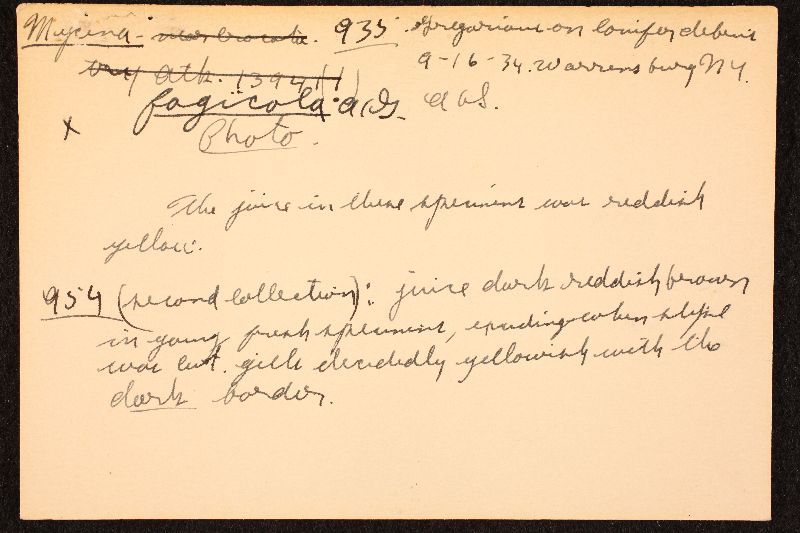 Mycena - 935. Gregarious on conifer debris
try Atk. 1394 9-16-34. Warrensburg NY.
fagicola A.H.S.
x Photo.
The juice in these specimens was reddish
yellow.
954 (second collection): juice dark reddish brown
in young fresh specimens, exuding when stipe
was cut. gills decidedly yellowish with the
dark border.